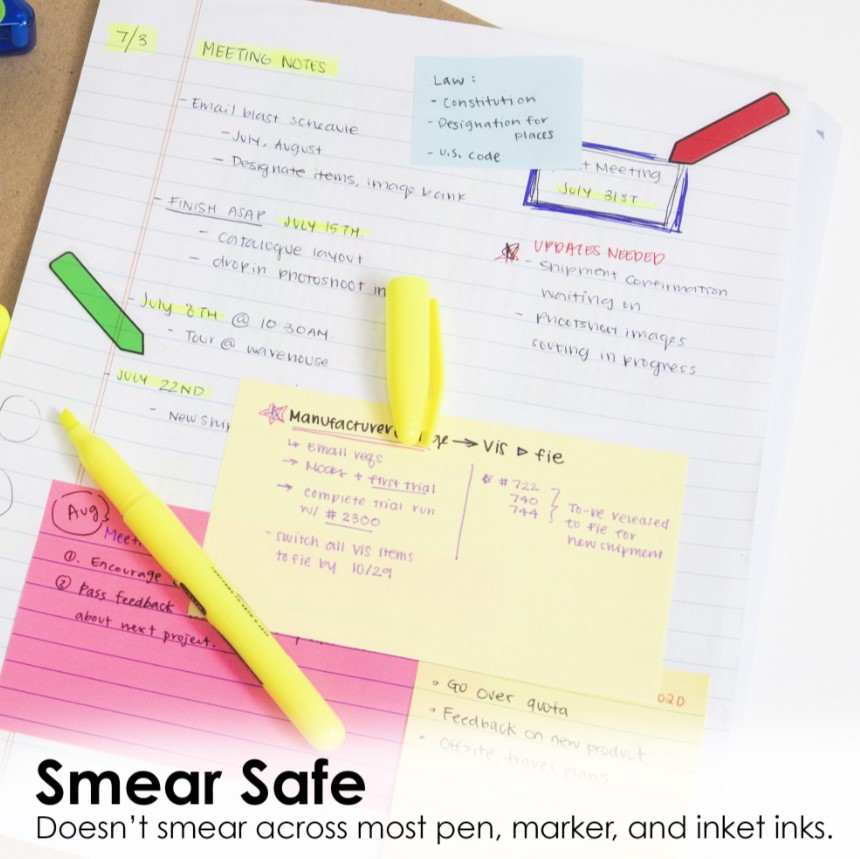 7/3
MEETING NOTES
- Email blast schedule
- July, August
- Designate items, image bank
- FINISH ASAP JULY 15TH
- catalogue layout
- drop in photoshoot
- July 8TH @ 10:30AM
- Tour @ warehouse
- JULY 22ND
- New
Law:
- Constitution
- Designation for
places
- U.S. Code
Meeting
July 31ST
UPDATES NEEDED
- Shipment confirmation
waiting on
- Photoshoot images
sorting in progress
Manufacturer → Vis ▷ fie
↳ Email reqs
→ Mocks + first trial
→ complete trial run
w/ # 2300
- switch all VIS items
to fie by 10/29
# 722
740
744
To-be released
to fie for
new shipment
Aug
①. Encourage
② Pass feedback
about next project.
020
• Go over quota
• Feedback on new product
• Offsite travel plans
Smear Safe
Doesn't smear across most pen, marker, and inket inks.